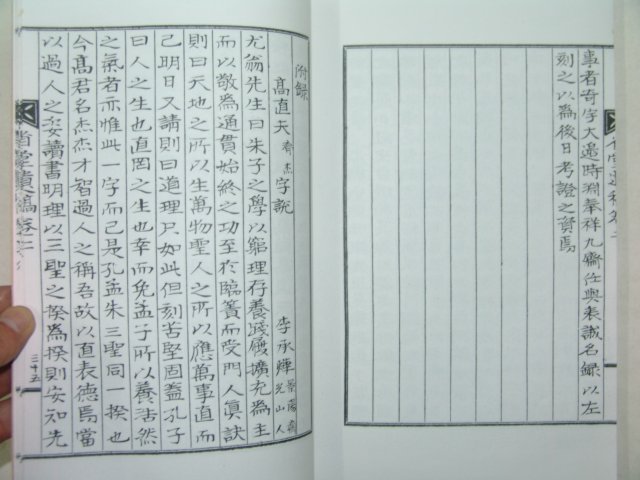 事者奇字大邉時淵奉祥九齋任奧表誠名錄以左
刻之以為後日考證之資焉
附錄
高直天齊杰字說
李承燁
光山人
尤翁先生曰朱子之學以窮理存養踐履擴充為主
而以敬為通貫始終之功至於臨簀而受門人眞訣
則曰天地之所以生萬物聖人之所以應萬事直而
己明日又請則曰道理只如此但刻苦堅固盖孔子
曰人之生也直罔之生也幸而免孟子所以養浩然
之氣者亦惟此一字而己是孔孟朱三聖同一揆也
今高君名杰杰才智過人之稱吾故以直表德焉當
以過人之姿讀書明理以三聖之揆為揆則安知先
三十五